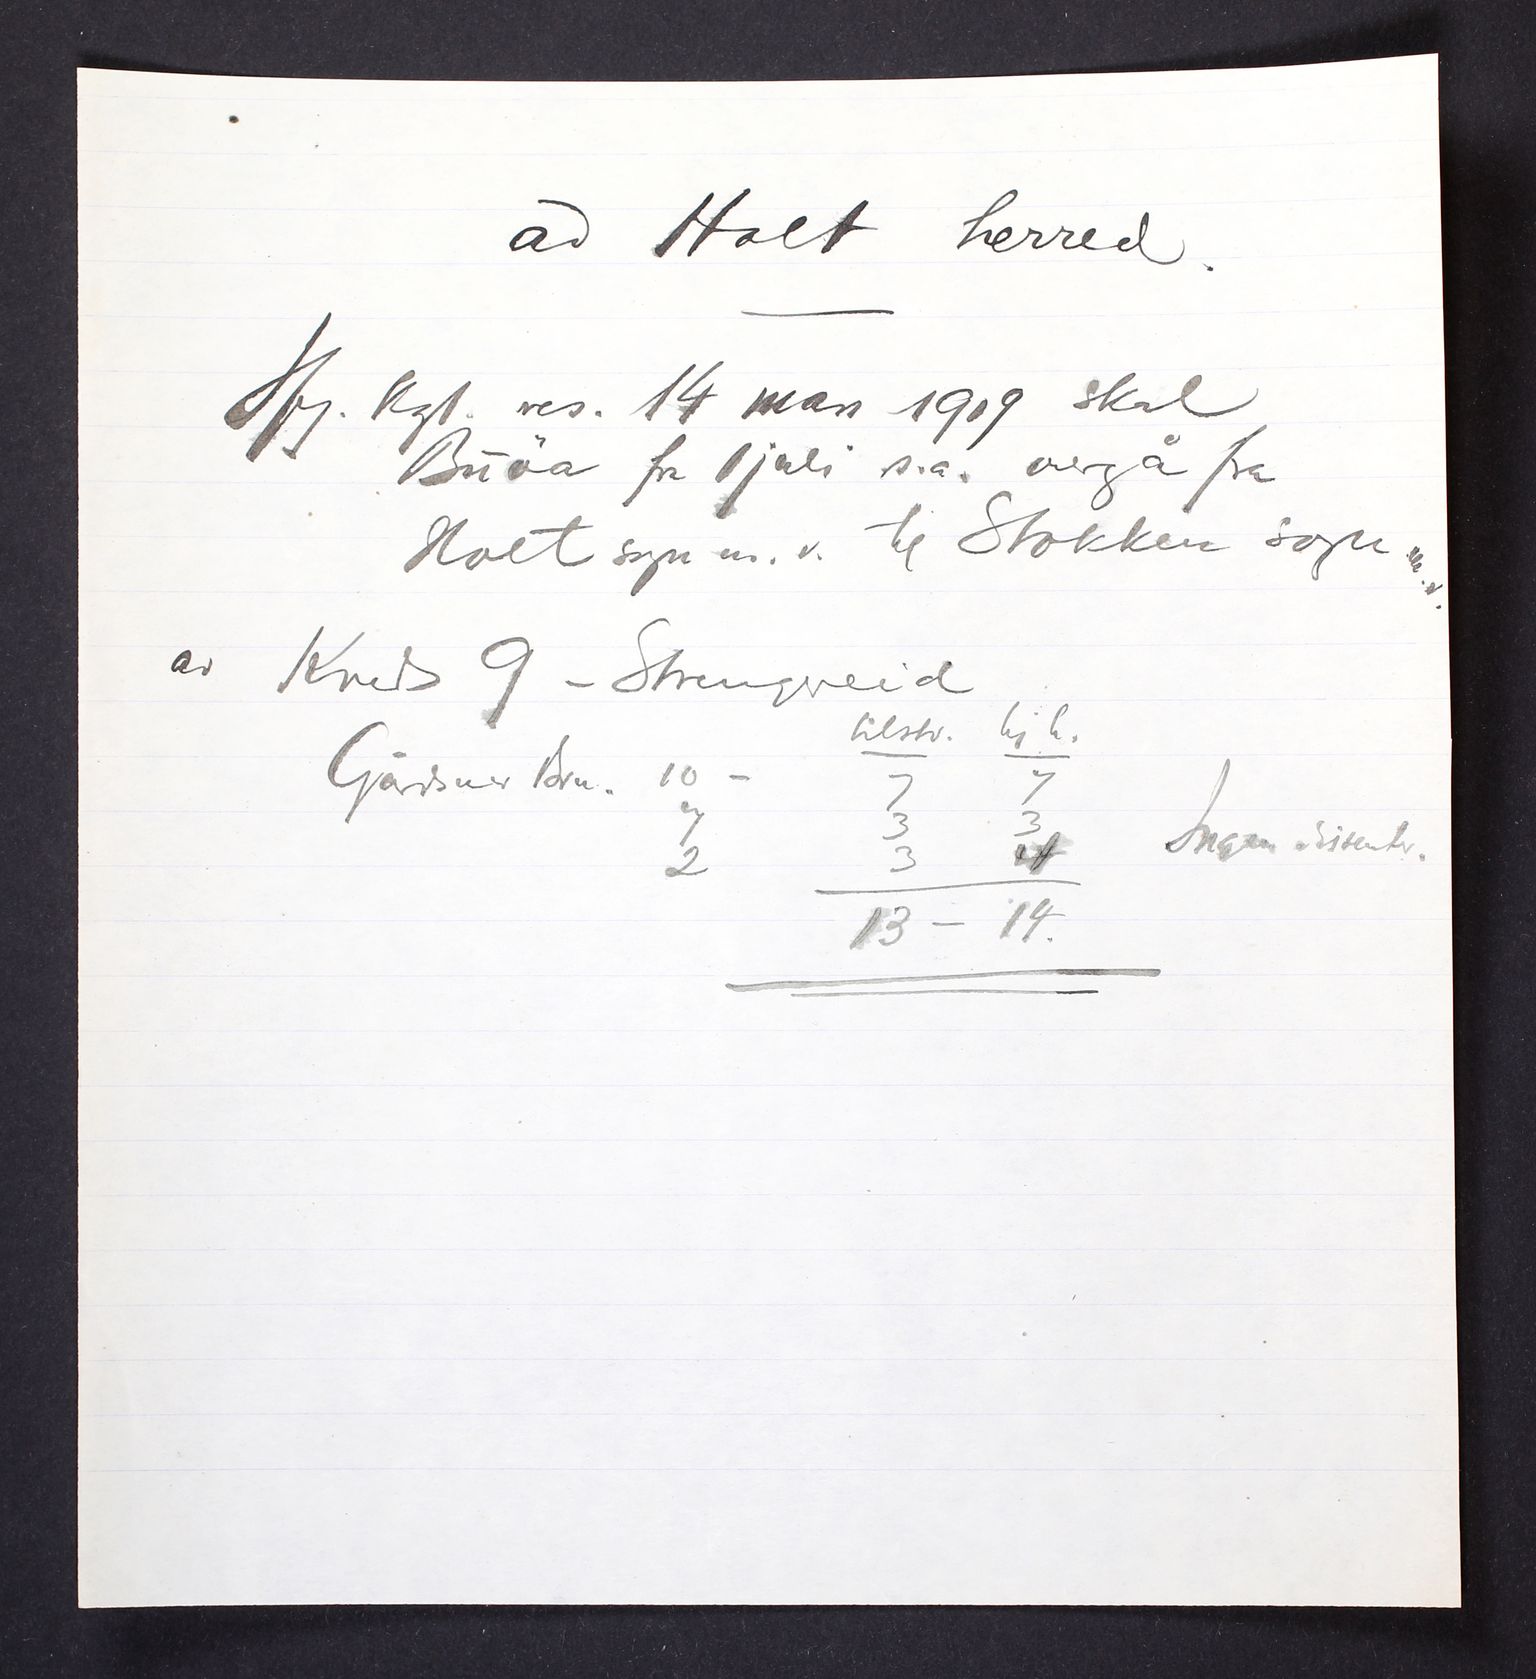 ad Holt herred.
Ifg. Kgl. res. 14 mars 1919 skal
Buöa fra 1 juli s.a. overgå fra
Holt sogn m. v. til Stokken sogn m.v.
av Kreds 9 - Strengereid
tilstv. hj. h.
Gårdsner Brn. 10 - 7 7
7 3 3 Ingen dissentr.
2 3 4
13 - 14.